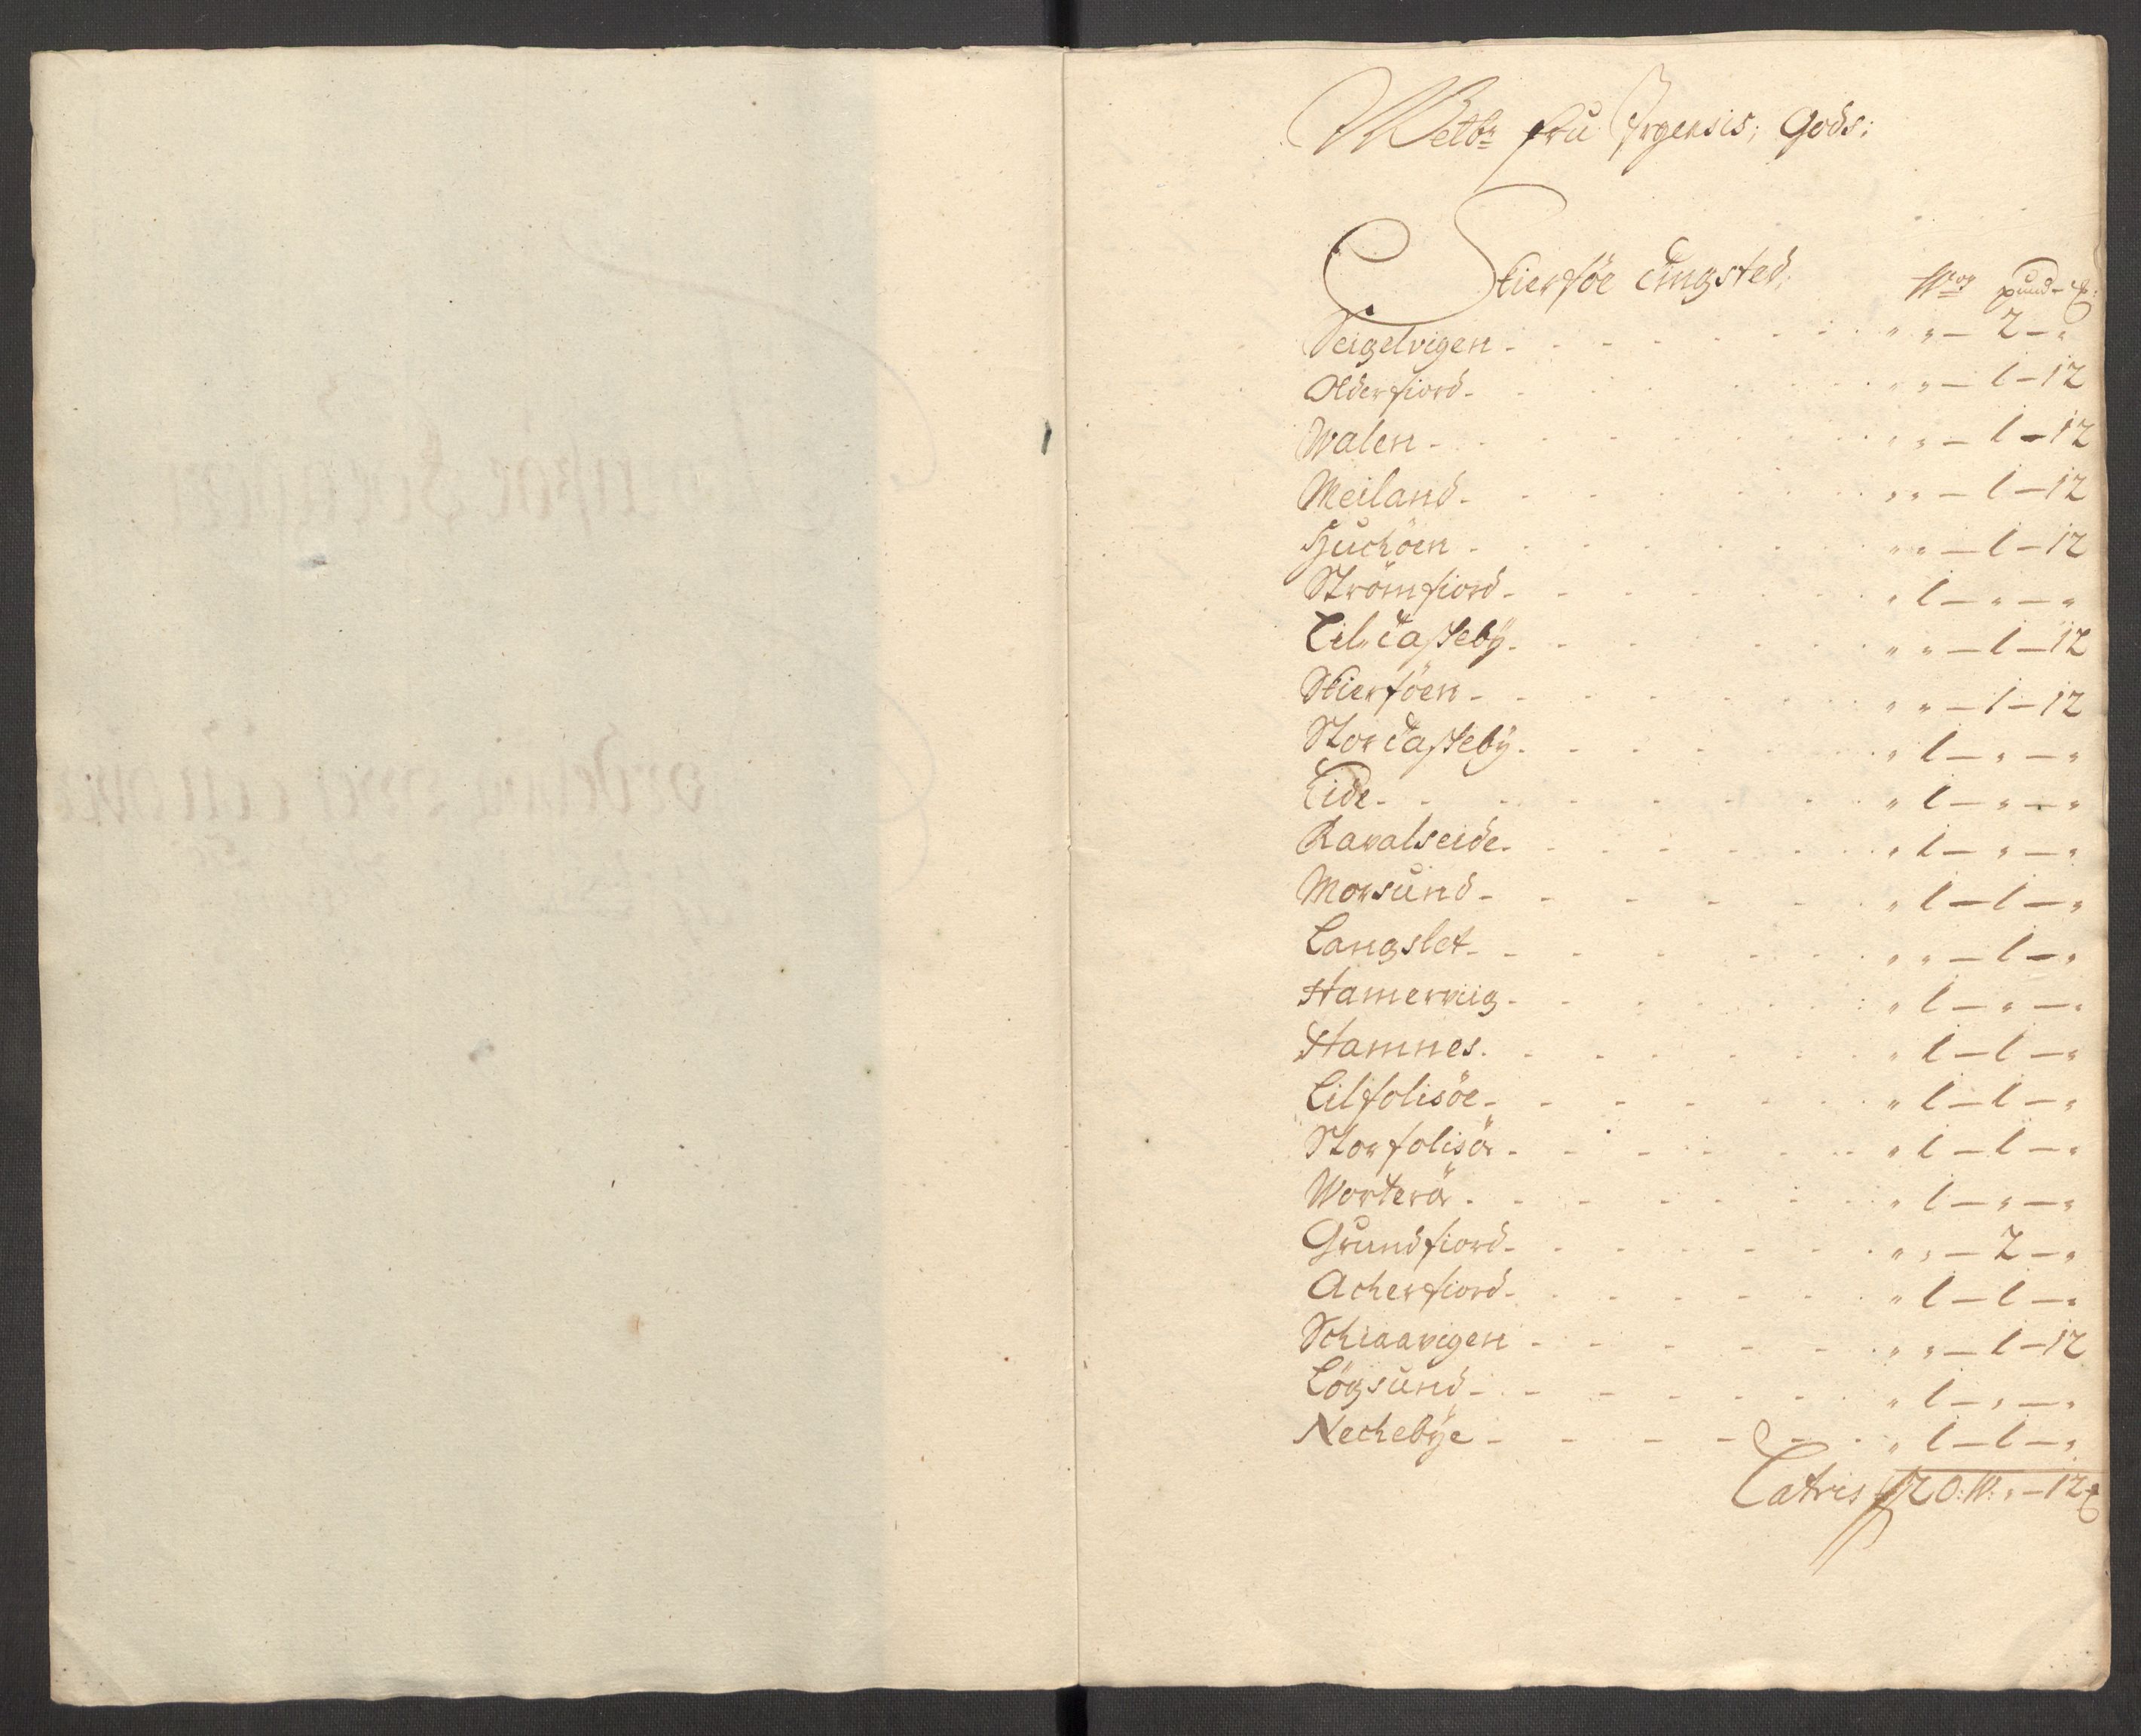 Welb: fru Jrgensis; Gods:
Skierföe Tingsted; Wog pund ℔:
Seigelvigen - - - - - - " " — 2 — "
Olderfiord - - - - - " " — 1 — 12
Walen - - - - - - " " — 1 — 12
Meiland - - - - - " " — 1 — 12
Huchöen - - - - - " " — 1 — 12
Strömfiord - - - - - " 1 — " — "
Lil Taskeby - - - - - " " — 1 — 12
Skierföen - - - - - " " — 1 — 12
Stor Taskeby - - - - - " 1 — " — "
Eide - - - - - - " 1 — " — "
Ravalseide - - - - - " 1 — " — "
Morsund - - - - - " 1 — 1 — "
Langslet - - - - - " " — 1 — "
Hamerviig - - - - - " 1 — " — "
Hamnes - - - - - " 1 — 1 — "
Lilfolisöe - - - - - " 1 — 1 — "
Storfolisöe - - - - - " 1 — 1 — "
Worteröe - - - - - " 1 — " — "
Grundfiord - - - - - " " — 2 — "
Acherfiord - - - - - " 1 — 1 — "
Schiaavigen - - - - - " " — 1 — 12
Lögsund - - - - - " 1 — " — "
Nechebÿe - - - - - " 1 — 1 — "
Latris 20: W: " — 12 ℔